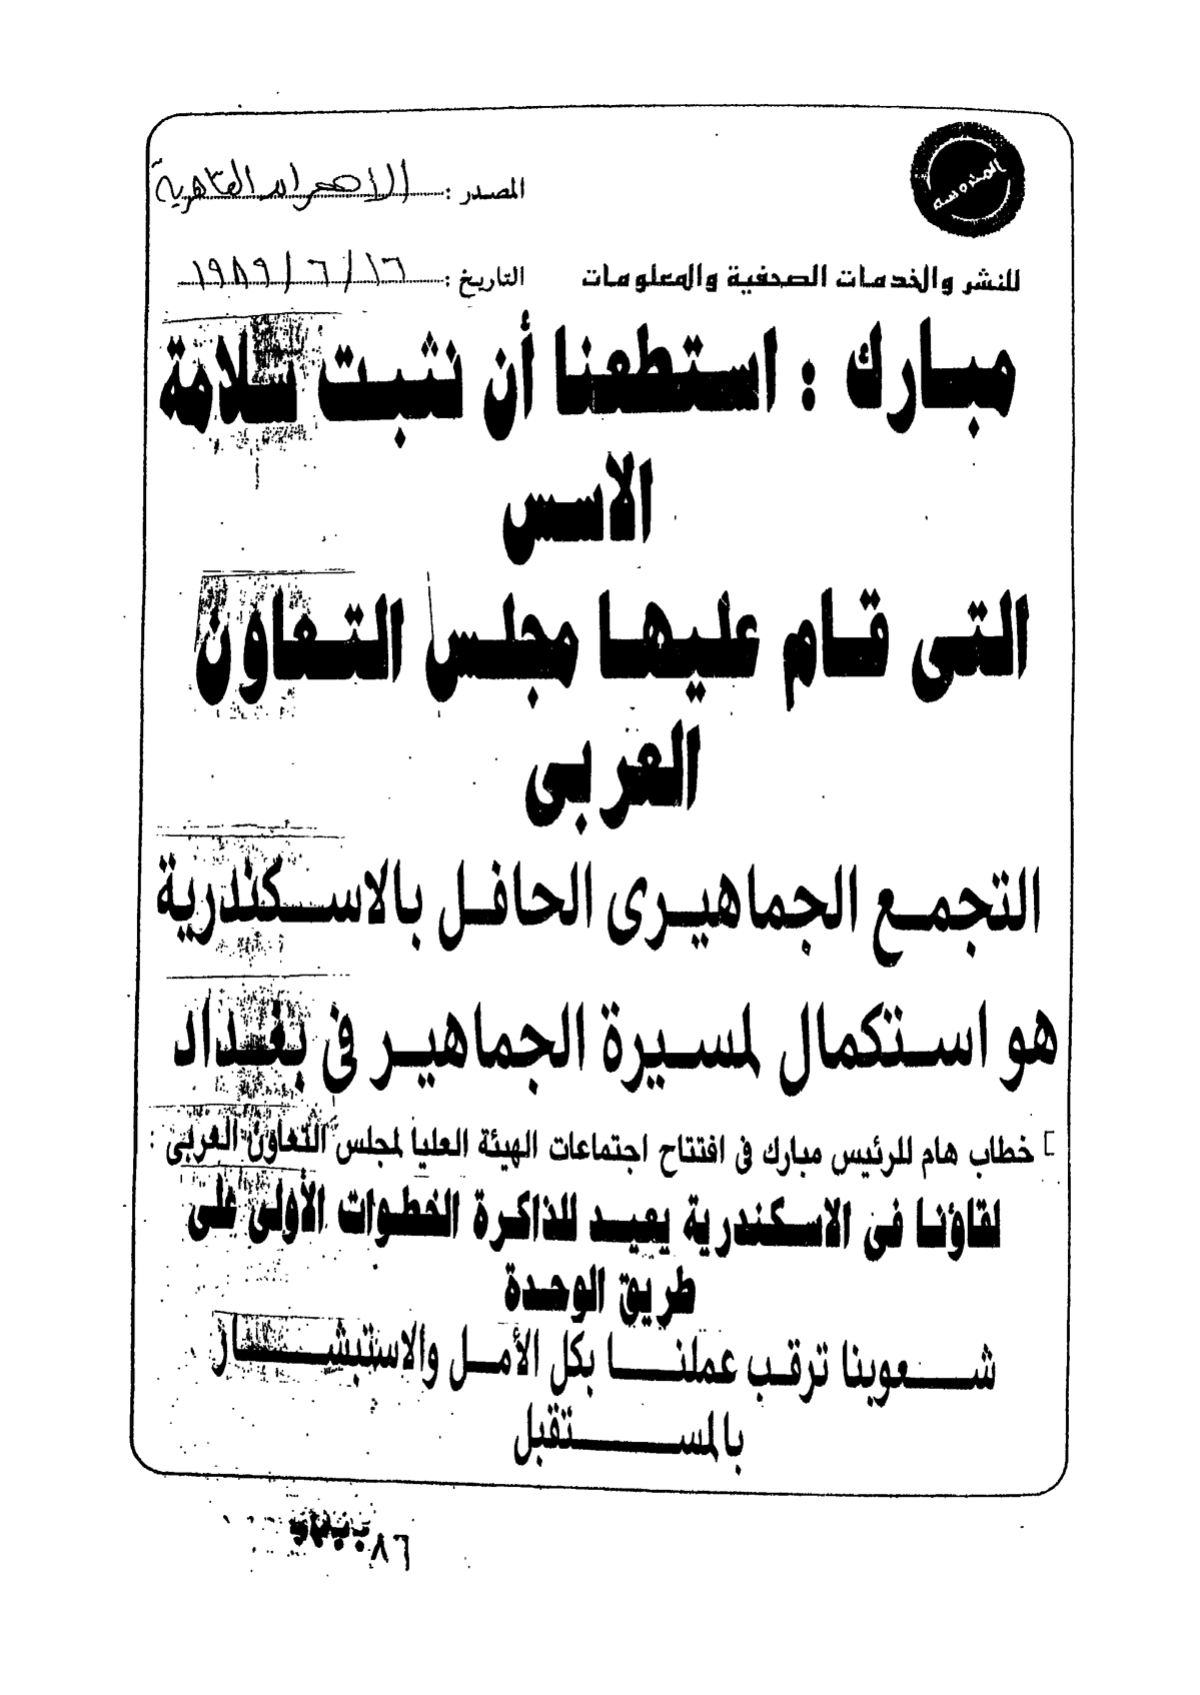 المصدر : الاهرام القاهرية
المحروسة
للنشر والخدمات الصحفية والمعلومات
التاريخ : ١٦ / ٦ / ١٩٨٩
مبارك : استطعنا أن نثبت سلامة
الاسس
التى قام عليها مجلس التعاون
العربى
التجمع الجماهيرى الحافل بالاسكندرية
هو استكمال لمسيرة الجماهير فى بغداد
[ خطاب هام للرئيس مبارك فى افتتاح اجتماعات الهيئة العليا لمجلس التعاون العربى :
لقاؤنا فى الاسكندرية يعيد للذاكرة الخطوات الأولى على
طريق الوحدة
شعوبنا ترقب عملنا بكل الأمل والاستبشار
بالمستقبل
٨٦